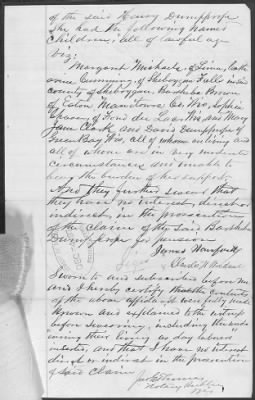 of the said Henry Dumpprope
She had the following named
children, all of lawful age
viz;
Margaret Michaels, of Lima, Cath
arine Cumming, of Sheboygan Falls in said
county of Sheboygan, Barthba Brown
of Eaton Manitowoc Co. Wis, Sophia
of Fond du Lac Wis and Mary
Jane Clark and David Dumpprope of
Green Bay Wis, all of whom are living and
all of whom are in very moderate
circumstances and unable to
bear the burden of her support,
And they further swear that
they have no interest, direct or
indirect, in the prosecution
of the claim of the said Barthba
Dumpprope for pension
James
Sworn to and subscribed before me
and I hereby certify that the contents
of the above affidavit were fully made
known and explained to the witness
before swearing, including the words
"earning their living as day laborers"
inserted, and that I have no interest
direct or indirect in the prosecution
of said claim
Notary Public
Wis